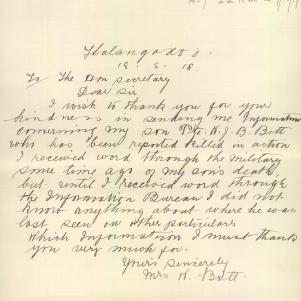 Kalangadoo.
18. 8. 18.
To The Hon Secretary
Dear Sir
I wish to thank you for your
kindness in sending me Information
concerning my son Pte W. J. B. Bott
who has been reported killed in action
I received word through the Military
some time ago of my sons death,
but until I received word through
the Information Bureau I did not
know anything about where he was
last seen or other particulars
Which Information I must thank
you very much for.
Yours Sincerely
Mrs W. Bott.